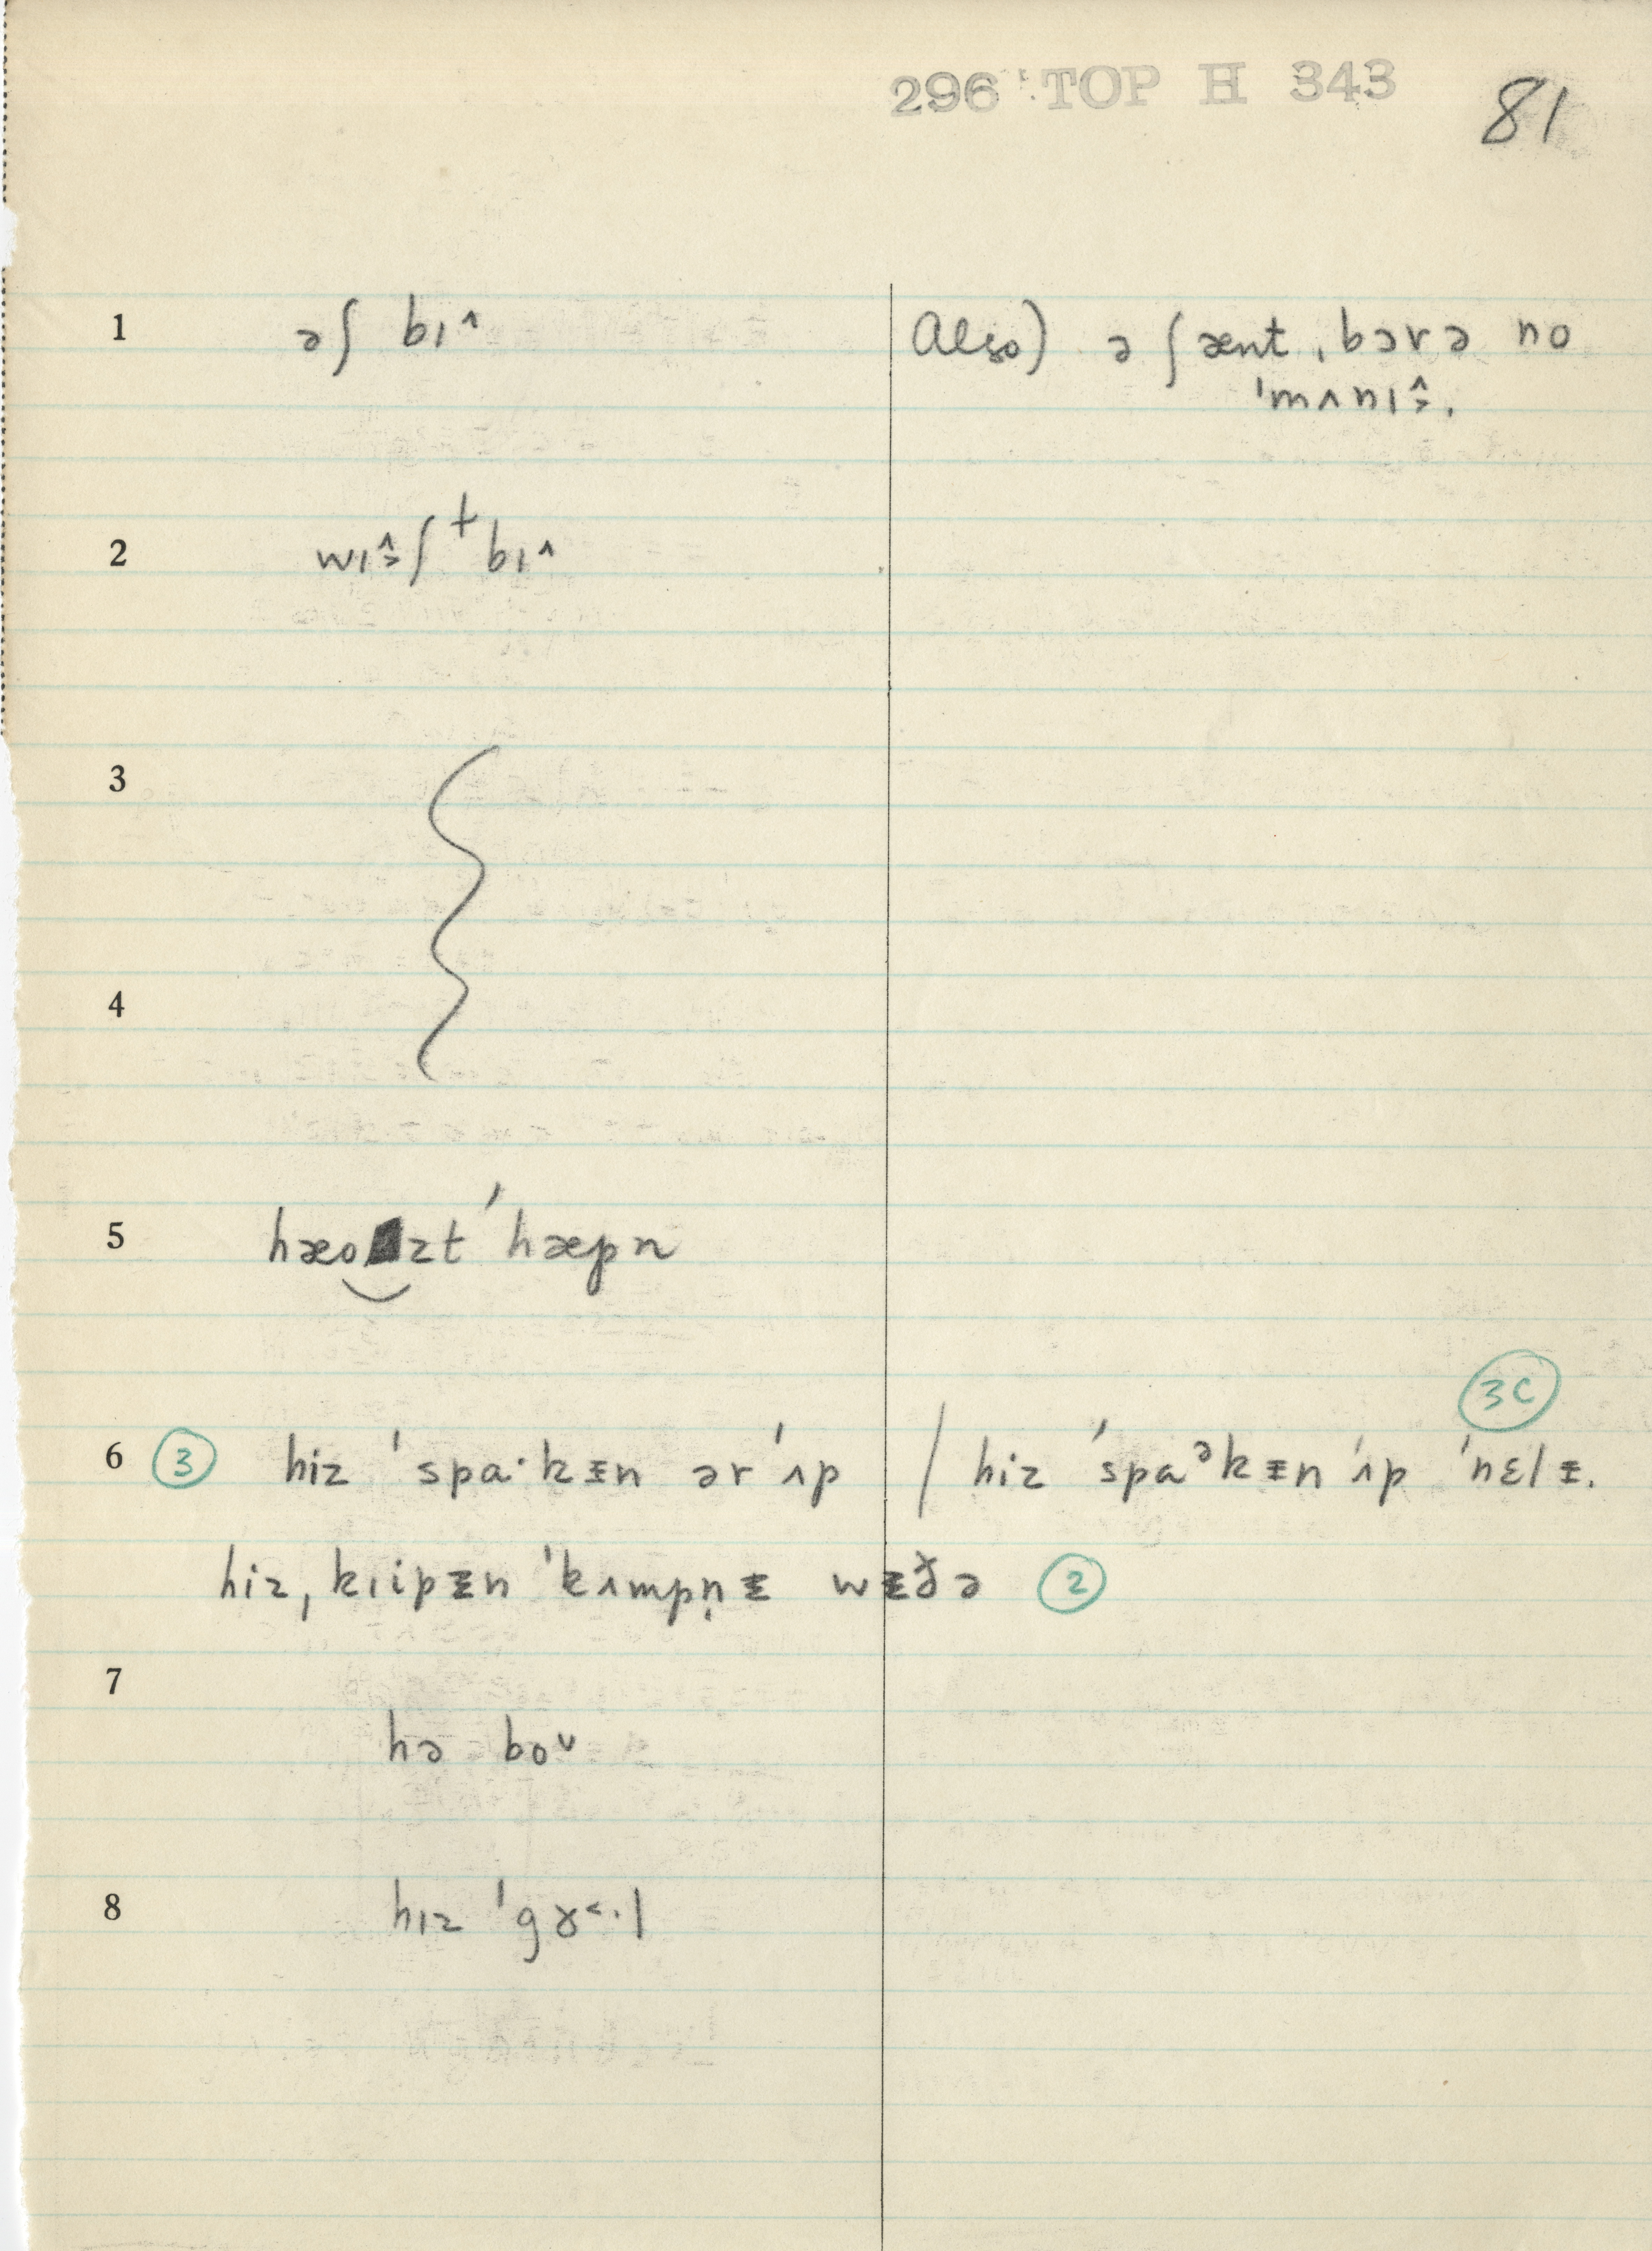 296 TOP H 343 81
1 əʃ bɪ^ Also) ə ʃænt ˌbɔrə no
ˈmʌnɪ^>.
2 wɪ^>ʃ + bɪ^
3
4
5 hæozt ˈhæpn
6 ③ hiz ˈspɑ·kɪ̵n ər ˈʌp / hiz ˈspɑᵊkɪ̵n ˈʌp ˈnɛlɪ̵. 3C
hizˌkɪipɪ̵n ˈkʌmpn̩ɪ̵ wɪ̵ð̬ə ②
7
hə boᵛ
8 hɪz ˈgɤ<·l